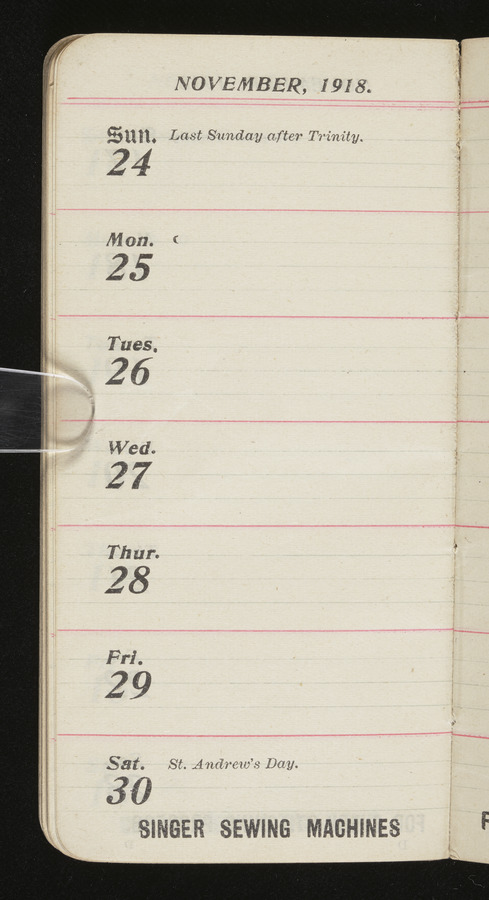 NOVEMBER, 1918.
Sun. Last Sunday after Trinity.
24
Mon. ☾
25
Tues.
26
Wed.
27
Thur.
28
Fri.
29
Sat. St. Andrew's Day.
30
SINGER SEWING MACHINES